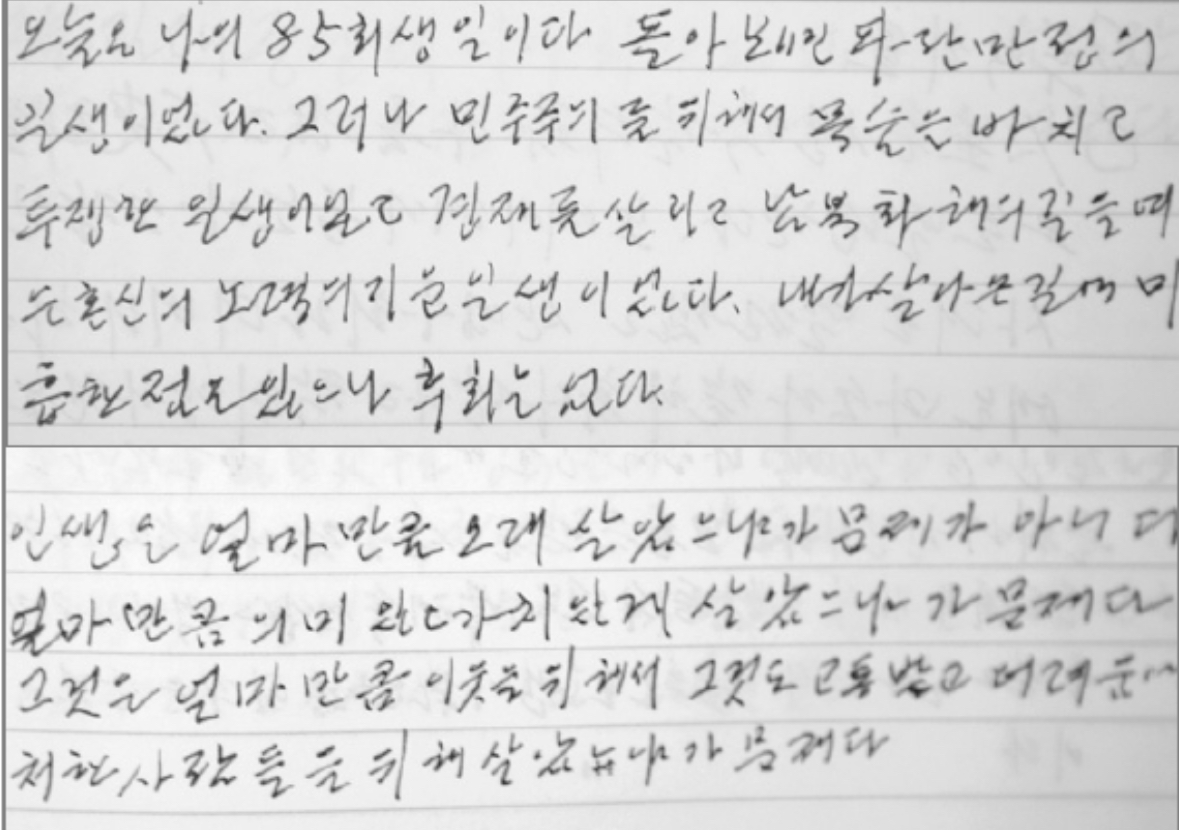 오늘은 나의 85회 생일이다 돌아보면 파란만점의
일생이었다. 그러나 민주주의를 위해서 목숨을 바치고
투쟁한 일생이었고 경제를 살리고 남북화해의 길을 여
는 혼신의 노력의 기울인 일생이었다. 내가 살아온 길에 미
흡한 점은 있으나 후회는 없다.
인생은 얼마만큼 오래 살았느냐가 문제가 아니다
얼마만큼 의미 있고 가치있게 살았느냐가 문제다
그것은 얼마만큼 이웃을 위해서 그것도 고통받고 어려움에
처한 사람들을 위해 살았느냐가 문제다